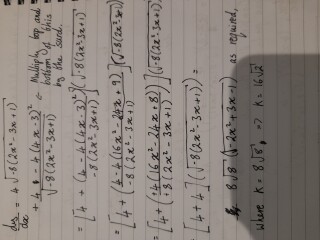 dy/dx = 4√-8(2x²-3x+1)
+ 4 · -4(4x-3)² / √-8(2x²-3x+1)
← Multiply top and
bottom of this
by the surd.
= [4 + (4-4(4x-3)²) / -8(2x²-3x+1)] [√-8(2x²-3x+1)]
= [4 + (4-4(16x²-24x+9)) / -8(2x²-3x+1)] [√-8(2x²-3x+1)]
= [4 + (4(16x²-24x+8)) / -8(2x²-3x+1)] [√-8(2x²-3x+1)]
= [4+4] (√-8(2x²-3x+1)) =
8√8 √-2x²+3x-1 as required,
where K = 8√8, => K = 16√2